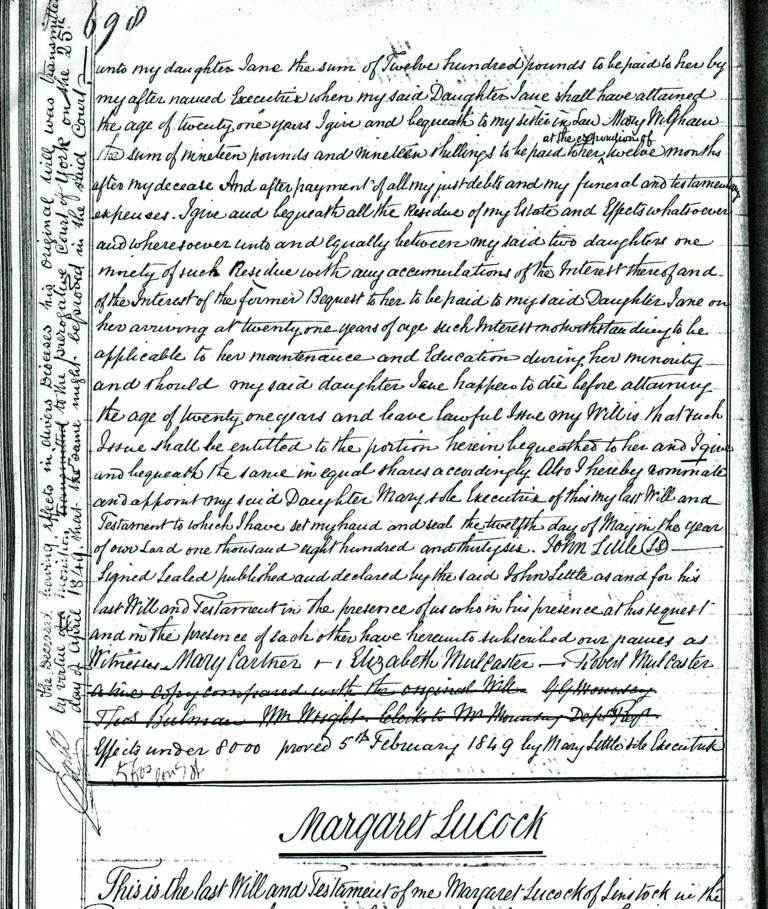 698
unto my daughter Jane the sum of Twelve hundred pounds to be paid to her by
my after named Executrix when my said Daughter Jane shall have attained
the age of twenty one years I give and bequeath to my sister in Law Mary
at the expiration of
the sum of nineteen pounds and nineteen shillings to be paid to her twelve months
after my decease And after payment of all my just debts and my funeral and testamentary
expenses. I give and bequeath all the Residue of my Estate and Effects whatsoever
and wheresoever unto and Equally between my said two daughters one
moiety of such Residue with any accumulations of the Interest thereof and
of the Interest of the former Bequest to her to be paid to my said Daughter Jane on
her arriving at twenty one years of age such Interest notwithstanding to be
applicable to her maintenance and Education during her minority
and should my said daughter Jane happen to die before attaining
the age of twenty one years and leave lawful Issue my Will is that such
Issue shall be entitled to the portion herein bequeathed to her and I give
and bequeath the same in equal shares accordingly Also I hereby nominate
and appoint my said Daughter Mary sole Executrix of this my last Will and
Testament to which I have set my hand and seal the twelfth day of May in the year
of our Lord one thousand eight hundred and thirty six. John Little LS
Signed Sealed published and declared by the said John Little as and for his
last Will and Testament in the presence of us who in his presence at his request
and in the presence of each other have hereunto subscribed our names as
Witnesses Mary Cartner + Elizabeth Mulcaster — Robert Mulcaster
a true copy compared with the original Will G G Mounsey
Thos Bulman Wm Wright Clerks to Mr Mounsey Depy Regr
Effects under 8000 proved 5th February 1849 by Mary Little sole Executrix
The deceased having effects in divers Dioceses his original will was transmitted
by value of a monition transmitted to the prerogative Court of York on the 25th
day of April 1849 that the same might be proved in the said Court
Margaret Lucock
This is the last Will and Testament of me Margaret Lucock of Linstock in the